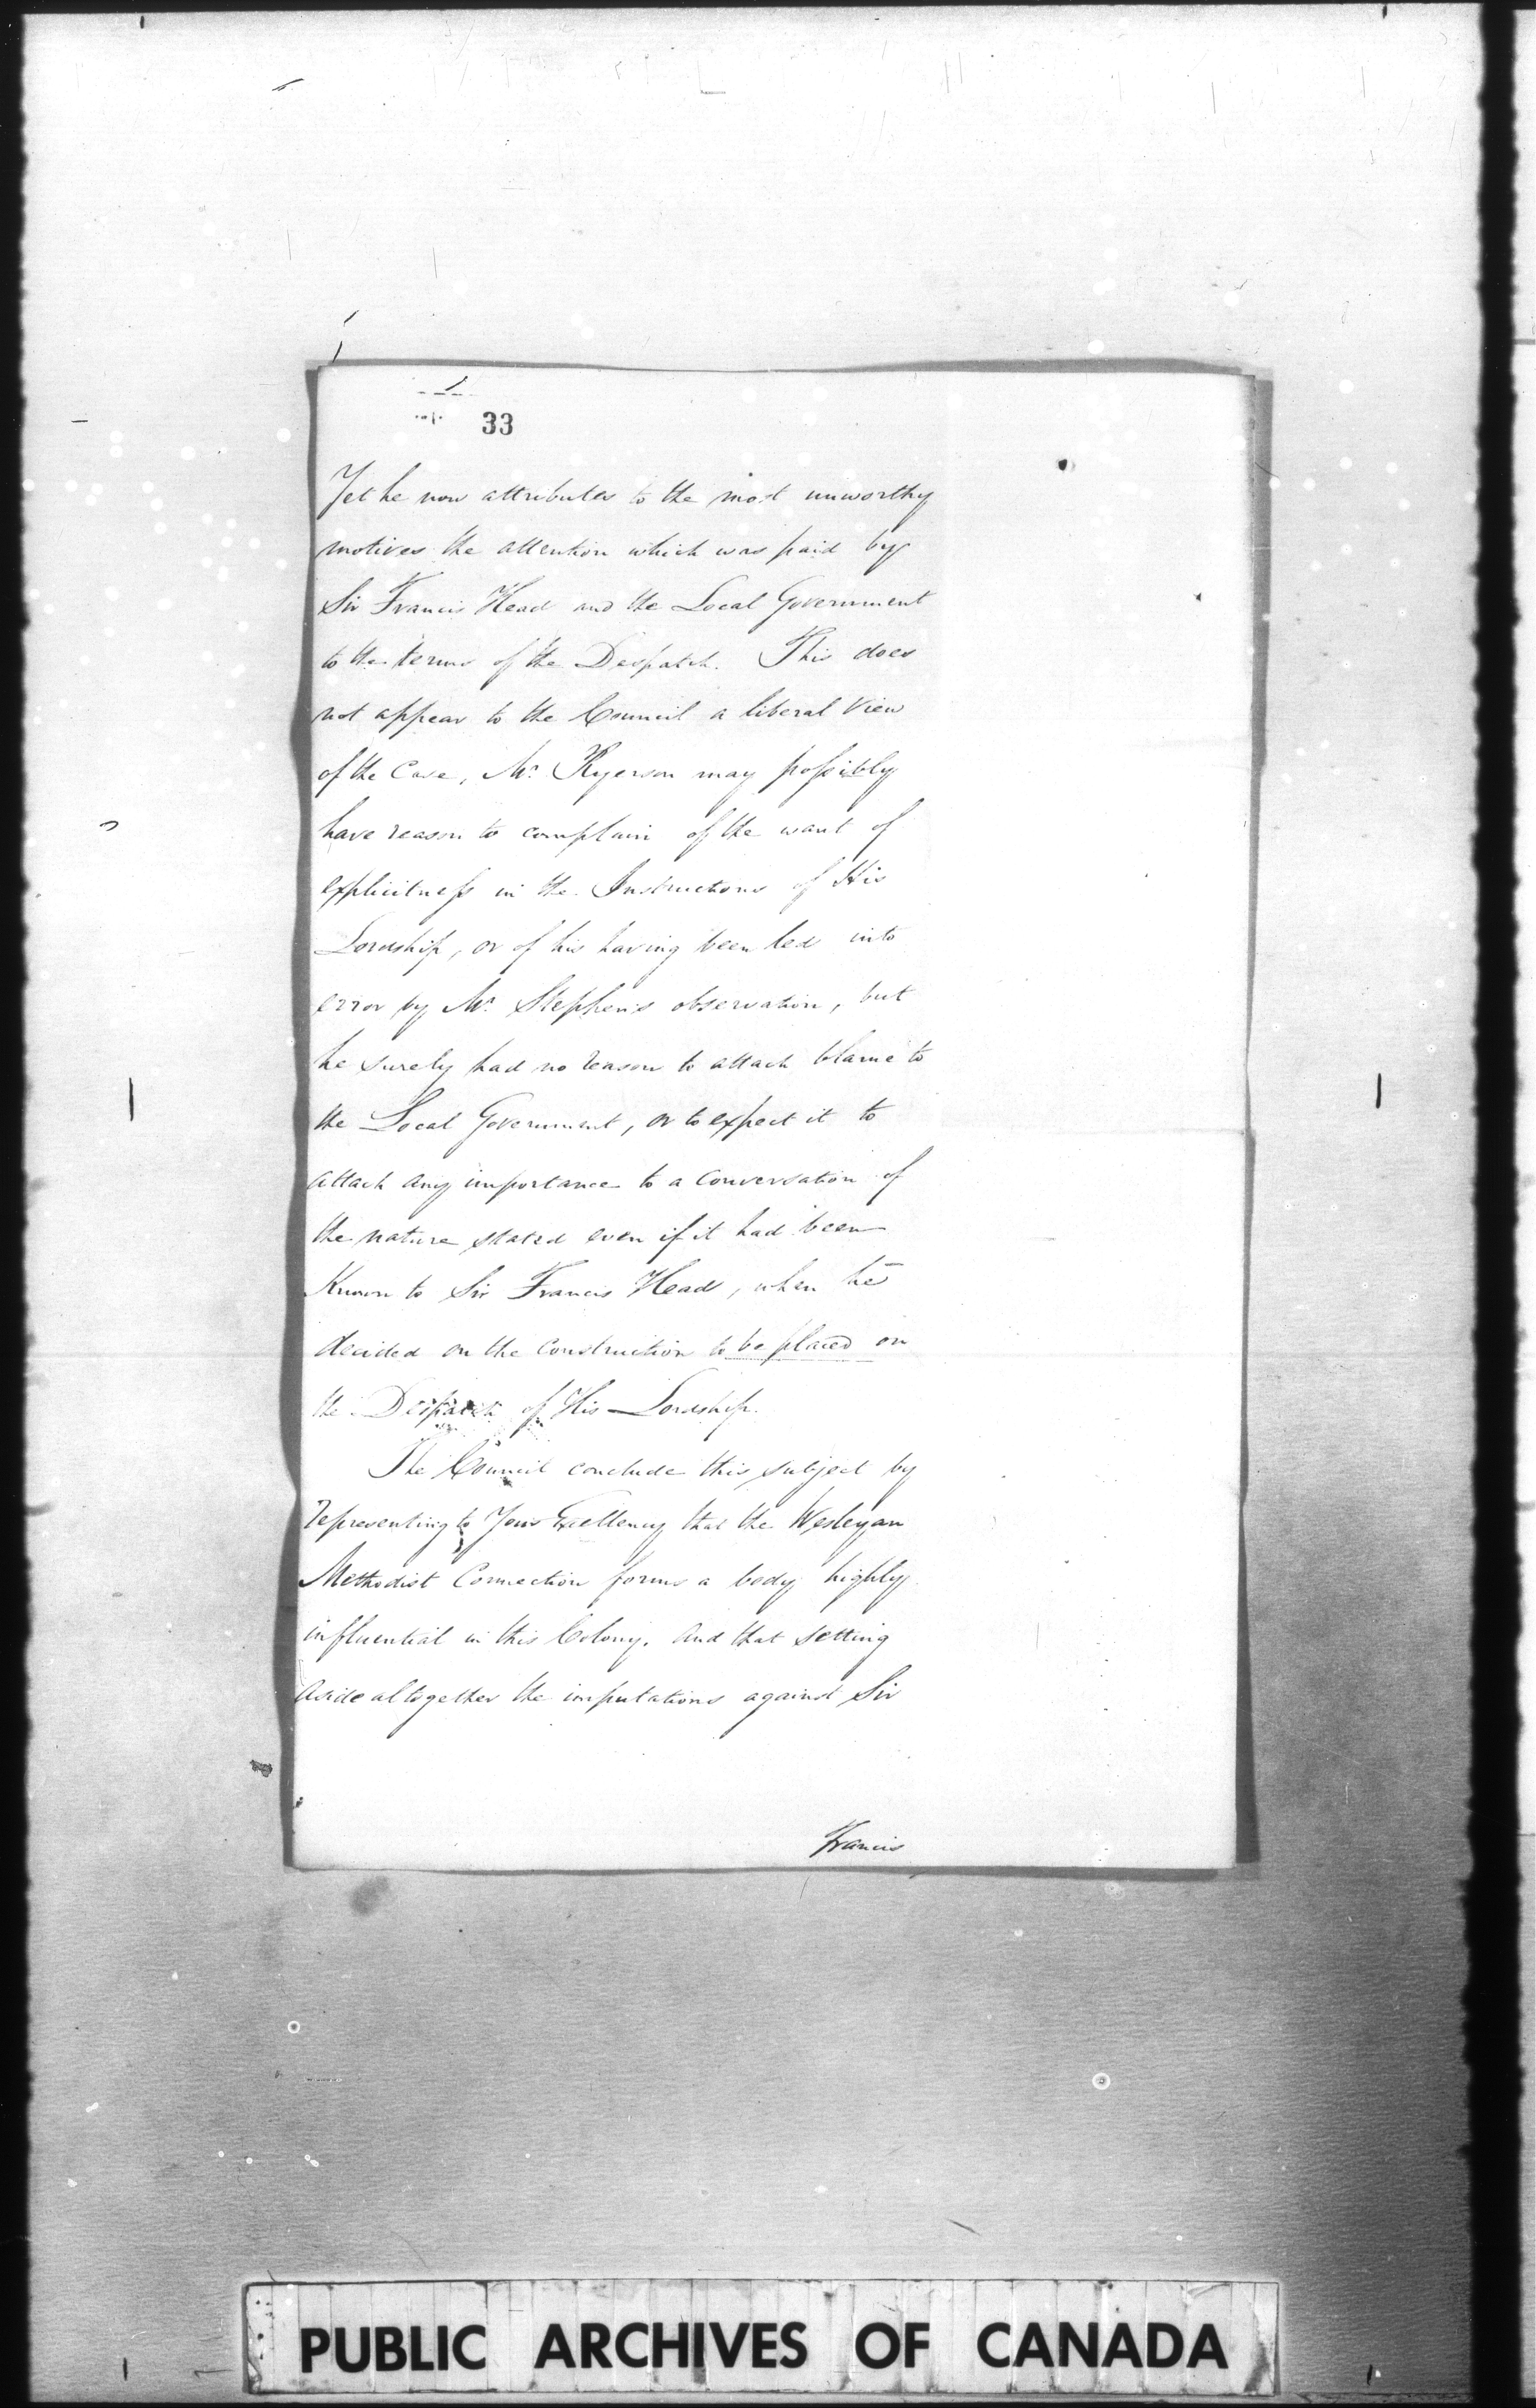 33
Yet he now attributes to the most unworthy
motives the attention which was paid by
Sir Francis Head and the Local Government
to the terms of the Despatch. This does
not appear to the Council a liberal View
of the Case, Mr. Ryerson may possibly
have reason to complain of the want of
explicitness in the Instructions of His
Lordship, or of his having been led into
error by Mr. Stephen's observation, but
he surely had no reason to attach blame to
the Local Government, or to expect it to
attach any importance to a Conversation of
the nature stated even if it had been
Known to Sir Francis Head, when he
decided on the Construction to be placed on
the Despatch of His Lordship.
The Council conclude this subject by
representing to Your Excellency that the Wesleyan
Methodist Connection forms a body highly
influential in this Colony. And that setting
aside altogether the imputations against Sir
Francis
PUBLIC ARCHIVES OF CANADA